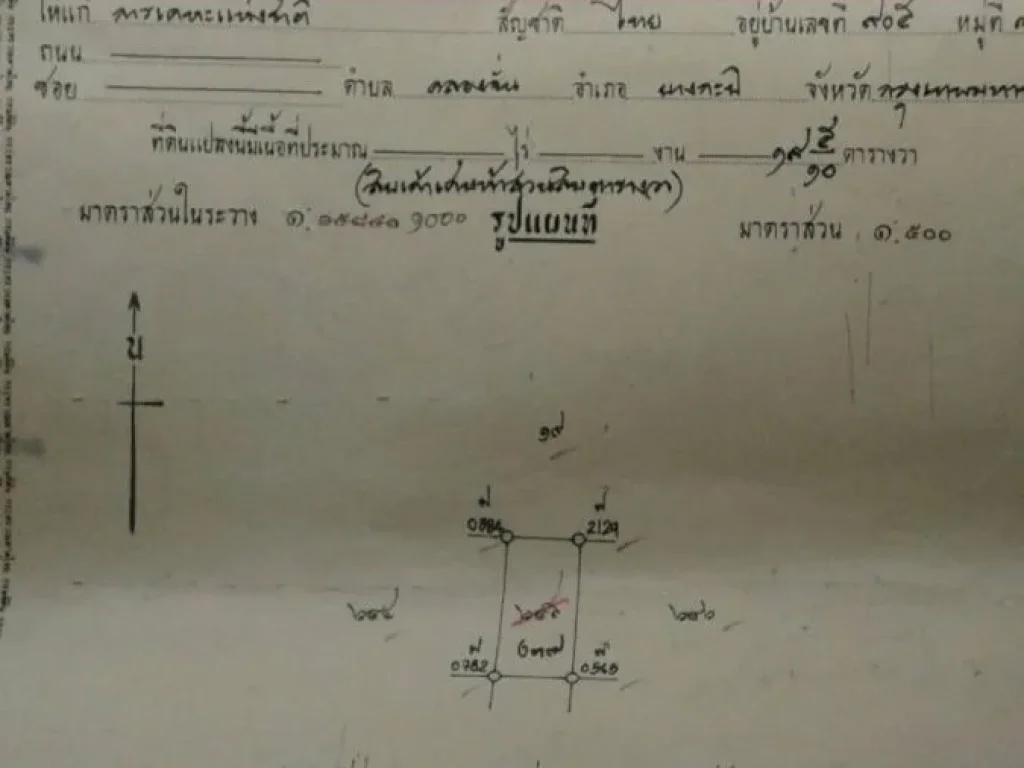 ให้แก่ การเคหะแห่งชาติ สัญชาติ ไทย อยู่บ้านเลขที่ ๙๐๕ หมู่ที่
ถนน
ซอย ตำบล คลองจั่น อำเภอ บางกะปิ จังหวัด กรุงเทพมหาน
ที่ดินแปลงนี้มีเนื้อที่ประมาณ ไร่ งาน ๑๙ ๕/๑๐ ตารางวา
(สิบเก้าเศษห้าส่วนสิบตารางวา)
มาตราส่วนในระวาง ๑: ๑๐๐๐ รูปแผนที่ มาตราส่วน ๑:๕๐๐
น
๑๙
ที่ ที่
2129
๒๘๔ ๒๘๐
ที่ ที่
0782 0565